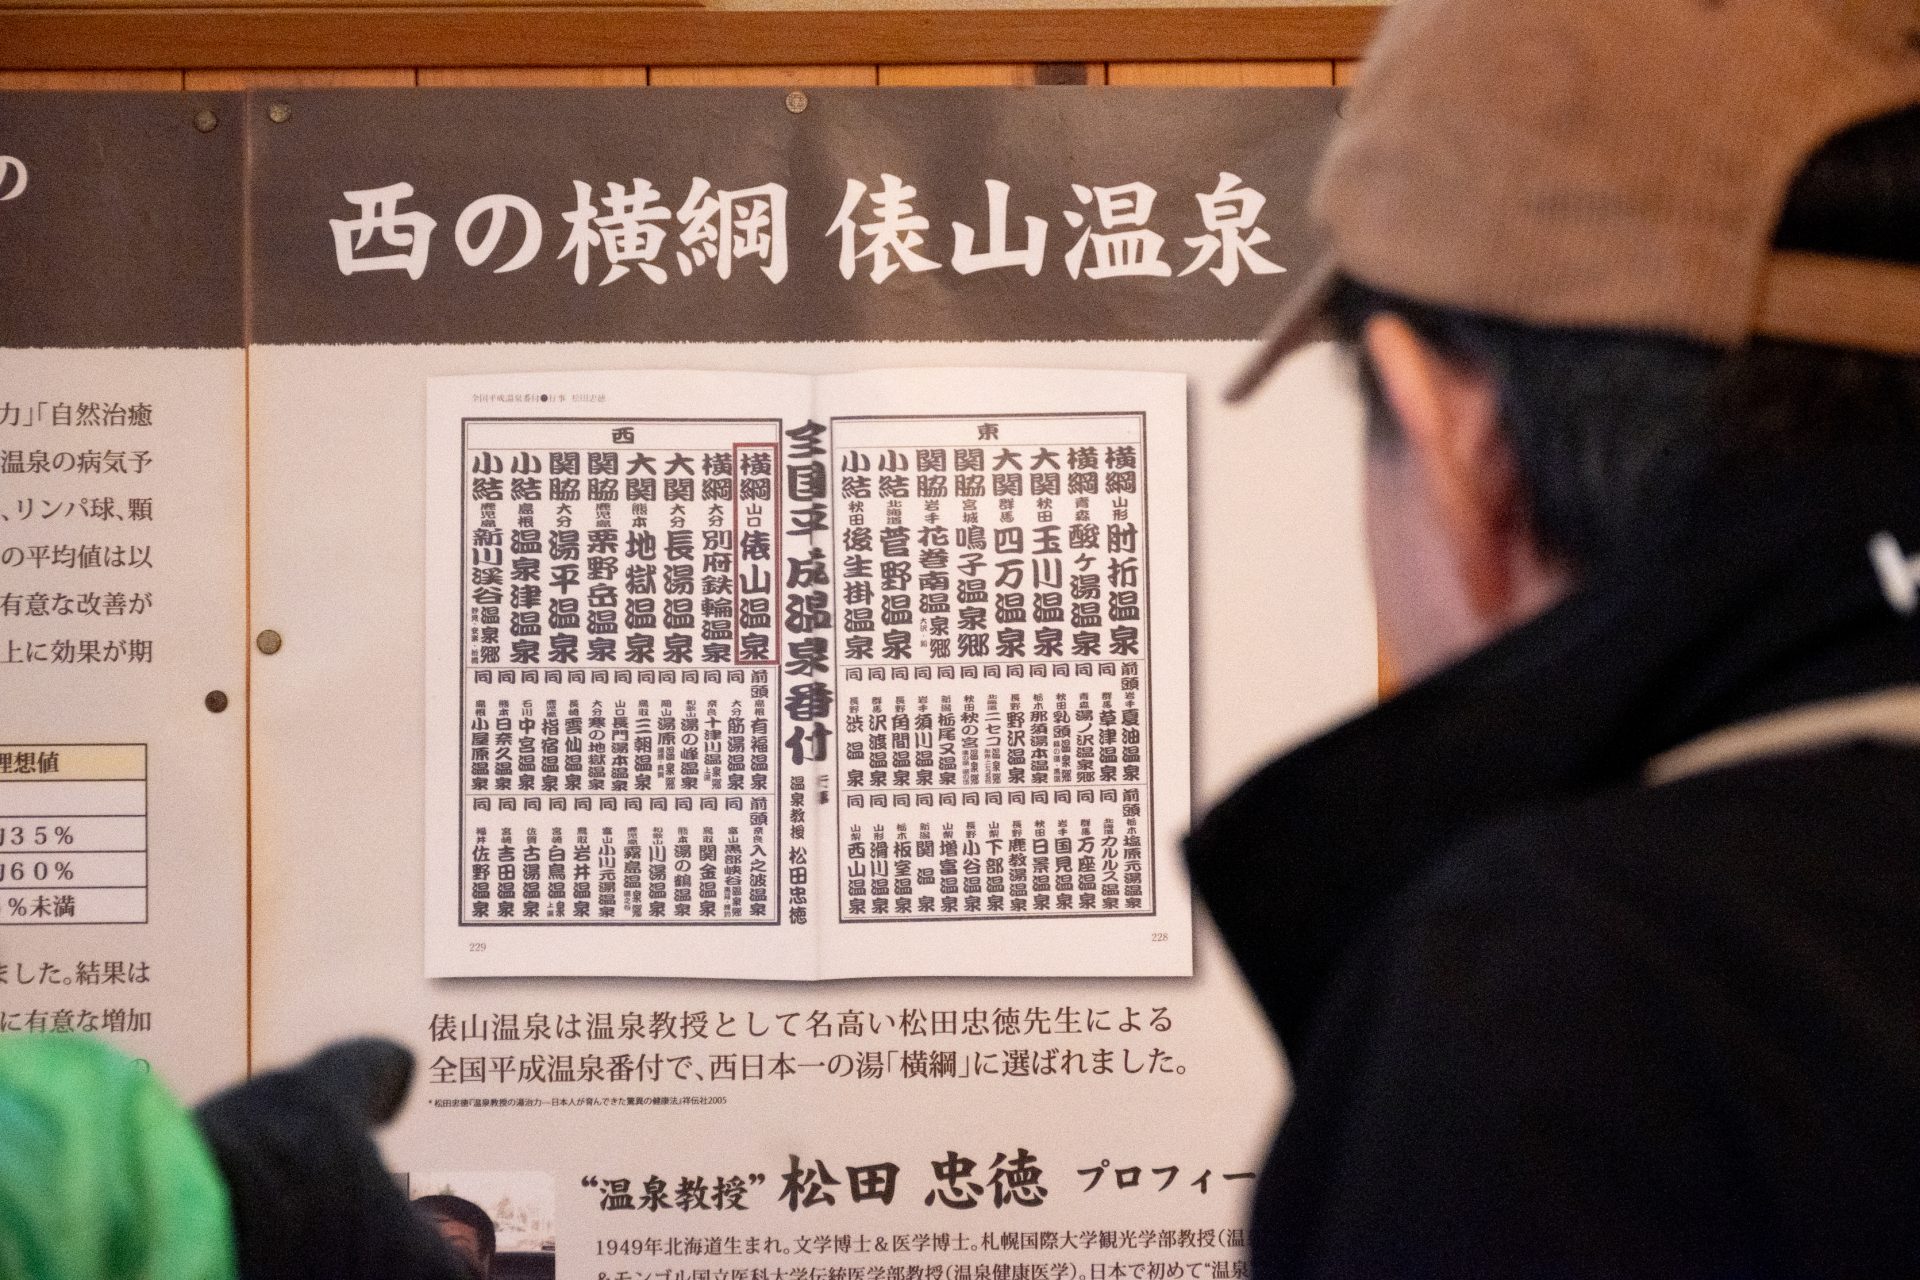 の
西の横綱 俵山温泉
力」「自然治癒
温泉の病気予
、リンパ球、顆
の平均値は以
有意な改善が
上に効果が期
理想値
35%
60%
%未満
ました。結果は
に有意な増加
の
全国平成温泉番付●行事 松田忠徳
東
横綱 山形 肘折温泉
横綱 青森 酸ヶ湯温泉
大関 秋田 玉川温泉
大関 群馬 四万温泉
関脇 宮城 鳴子温泉郷
関脇 岩手 花巻南温泉郷
小結 北海道 菅野温泉
小結 秋田 後生掛温泉
前頭 岩手 夏油温泉
同 群馬 草津温泉
同 青森 湯ノ沢温泉郷
同 秋田 乳頭温泉郷
同 栃木 那須湯本温泉
同 長野 野沢温泉
同 北海道 ニセコ温泉郷
同 秋田 秋の宮温泉郷
同 新潟 栃尾又温泉
同 岩手 須川温泉
同 長野 角間温泉
同 群馬 沢渡温泉
同 長野 渋温泉
前頭 栃木 塩原元湯温泉
同 北海道 カルルス温泉
同 群馬 万座温泉
同 岩手 国見温泉
同 秋田 日景温泉
同 長野 鹿教湯温泉
同 山梨 下部温泉
同 長野 小谷温泉
同 山梨 増富温泉
同 新潟 関温泉
同 栃木 板室温泉
同 山形 滑川温泉
同 山梨 西山温泉
228
全国平成温泉番付
温泉教授 松田忠徳
西
横綱 山口 俵山温泉
横綱 大分 別府鉄輪温泉
大関 大分 長湯温泉
大関 熊本 地獄温泉
関脇 鹿児島 栗野岳温泉
関脇 大分 湯平温泉
小結 島根 温泉津温泉
小結 鹿児島 新川渓谷温泉郷
前頭 島根 有福温泉
同 大分 筋湯温泉
同 奈良 十津川温泉
同 和歌山 湯の峰温泉
同 岡山 湯原温泉郷
同 鳥取 三朝温泉
同 山口 長門湯本温泉
同 大分 寒の地獄温泉
同 長崎 雲仙温泉
同 鹿児島 指宿温泉
同 石川 中宮温泉
同 熊本 日奈久温泉
同 島根 小屋原温泉
前頭 奈良 入之波温泉
同 富山 黒部峡谷温泉郷
同 鳥取 関金温泉
同 熊本 湯の鶴温泉
同 和歌山 川湯温泉
同 鹿児島 霧島温泉郷
同 富山 小川元湯温泉
同 鳥取 岩井温泉
同 宮崎 白鳥温泉
同 佐賀 古湯温泉
同 宮崎 吉田温泉
同 福井 佐野温泉
229
俵山温泉は温泉教授として名高い松田忠徳先生による
全国平成温泉番付で、西日本一の湯「横綱」に選ばれました。
*松田忠徳『温泉教授の湯治力―日本人が育んできた驚異の健康法』祥伝社2005
“温泉教授” 松田 忠徳 プロフィー
1949年北海道生まれ。文学博士&医学博士。札幌国際大学観光学部教授(温
&モンゴル国立医科大学伝統医学部教授(温泉健康医学)。日本で初めて“温泉